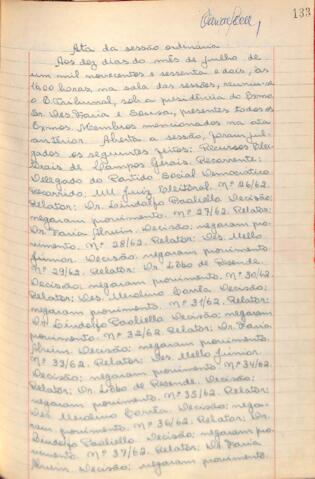 133
Ata da sessão ordinária
Aos dez dias do mês de julho de
um mil novecentos e sessenta e dois, às
16,00 horas, na sala das sessões, reuniu-se
o E. Tribunal, sob a presidência do Exmo
Sr. Des. Faria e Sousa, presentes todos os
Exmos. Membros mencionados na ata
anterior. Aberta a sessão, foram jul-
gados os seguintes feitos: Recursos Elei-
torais de Campos Gerais. Recorrente:
Delegado do Partido Social Democratico
Recorrido: MM. Juiz Eleitoral. Nº 26/62.
Relator: Dr. Lindolfo Paoliello Decisão:
negaram provimento. Nº 27/62. Relator:
Dr. Faria Alvim. Decisão: negaram pro-
vimento. Nº 28/62. Relator: Des. Mello
Júnior. Decisão: negaram provimento.
Nº 29/62. Relator: Dr. Lôbo de Resende.
Decisão: negaram provimento. Nº 30/62.
Relator: Des. Merolino Corrêa. Decisão:
negaram provimento. Nº 31/62. Relator:
Dr. Lindolfo Paoliello. Decisão: negaram
provimento. Nº 32/62. Relator: Dr. Faria
Alvim. Decisão: negaram provimento.
Nº 33/62. Relator: Des. Mello Júnior.
Decisão: negaram provimento. Nº 34/62.
Relator: Dr. Lôbo de Resende. Decisão:
negaram provimento. Nº 35/62. Relator:
Des. Merolino Corrêa. Decisão: nega-
ram provimento. Nº 36/62. Relator: Dr.
Lindolfo Paoliello. Decisão: negaram pro-
vimento. Nº 37/62. Relator: Dr. Faria
Alvim. Decisão: negaram provimento.